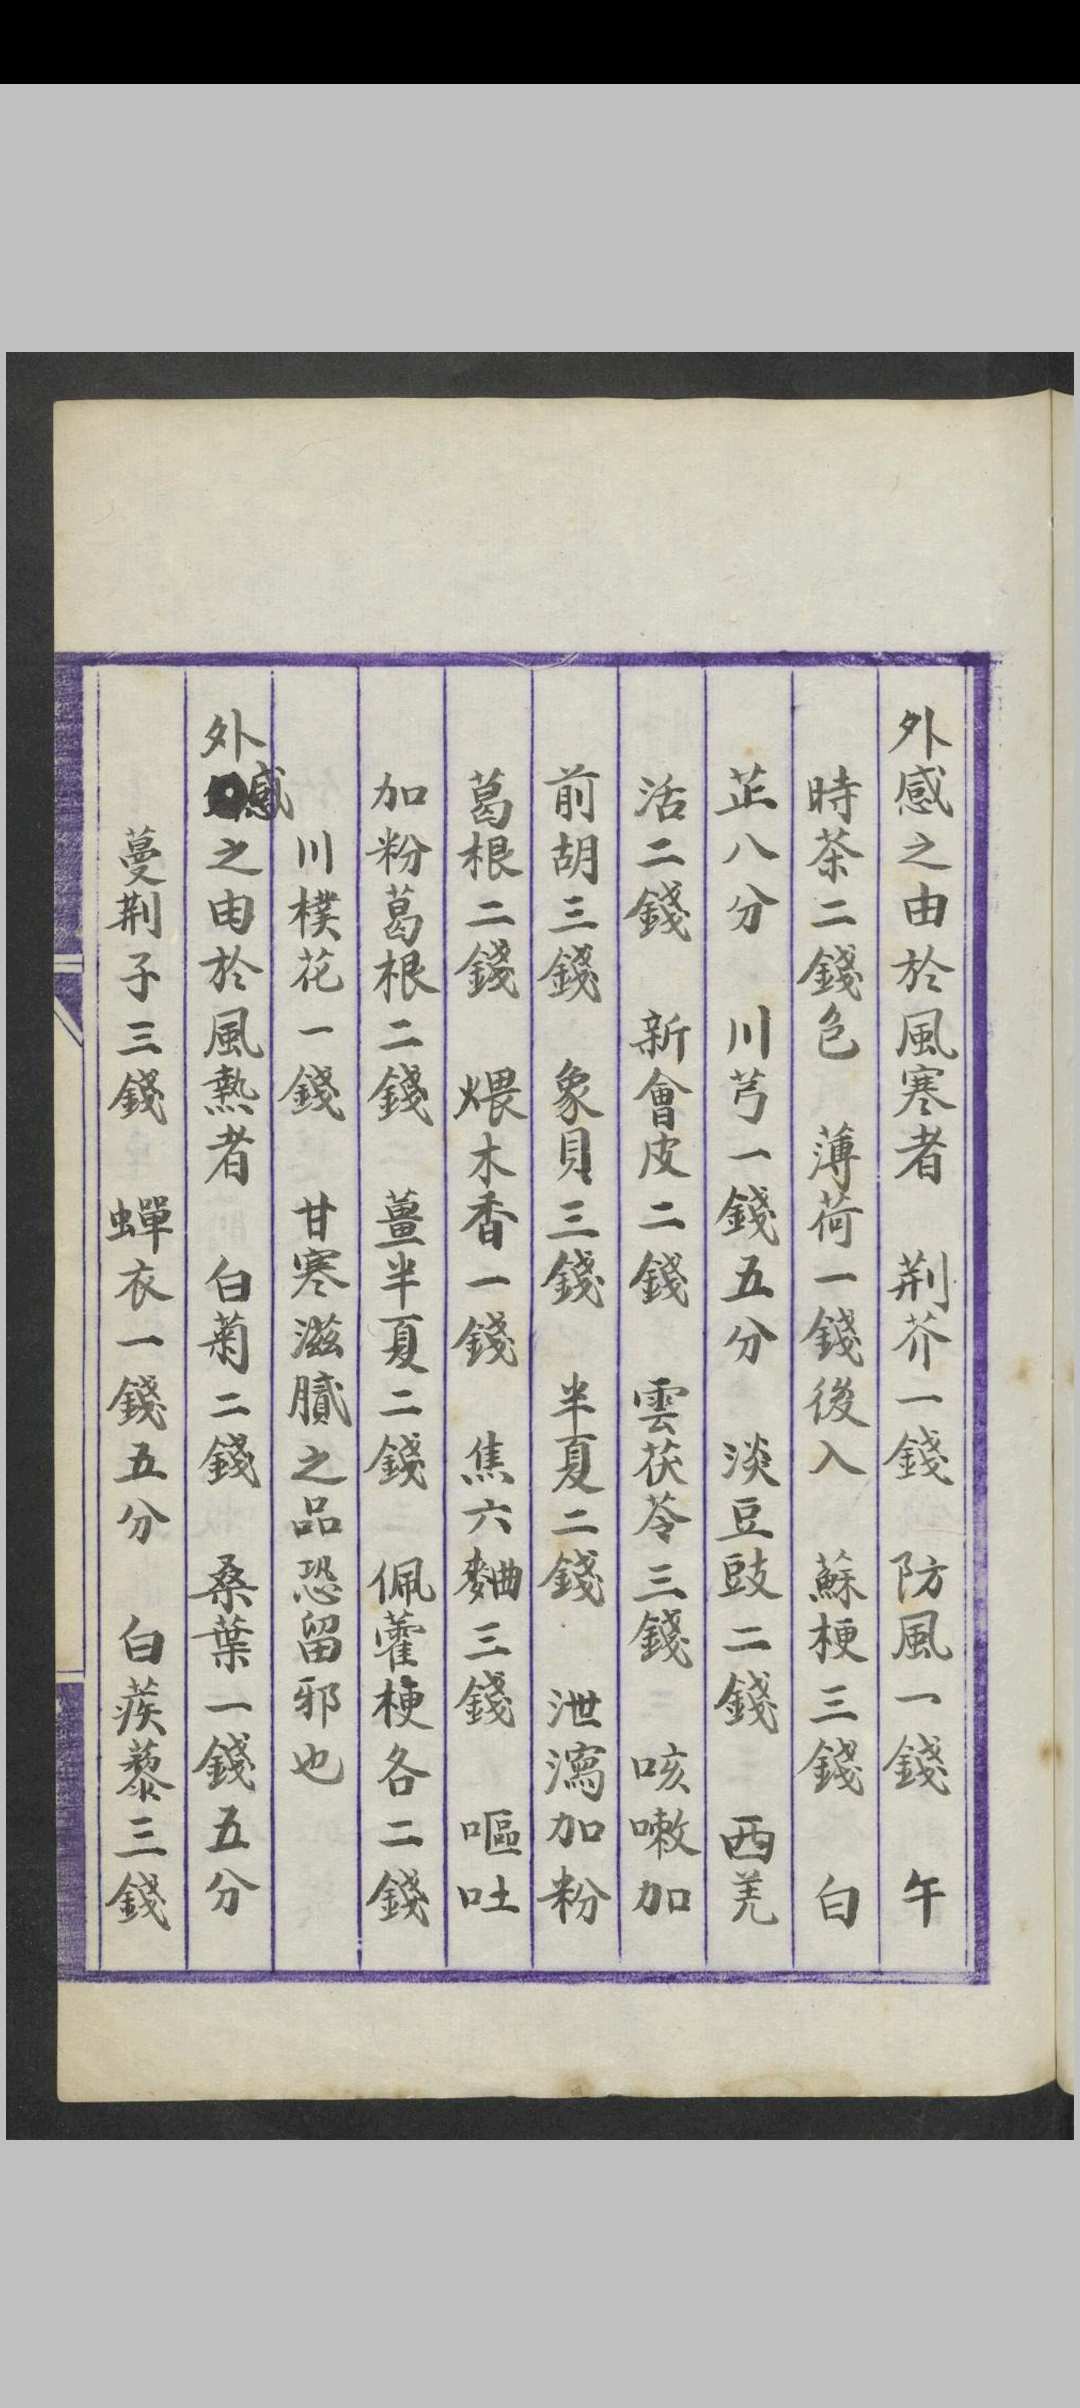 外感之由於風寒者　荆芥一錢　防風一錢　午
時茶二錢包　薄荷一錢後入　蘇梗三錢　白
芷八分　川芎一錢五分　淡豆豉二錢　西羌
活二錢　新會皮二錢　雲茯苓三錢　咳嗽加
前胡三錢　象貝三錢　半夏二錢　泄瀉加粉
葛根二錢　煨木香一錢　焦六麯三錢　嘔吐
加粉葛根二錢　薑半夏二錢　佩藿梗各二錢
川樸花一錢　甘寒滋膩之品恐留邪也
外感之由於風熱者　白菊二錢　桑葉一錢五分
蔓荆子三錢　蟬衣一錢五分　白蒺藜三錢